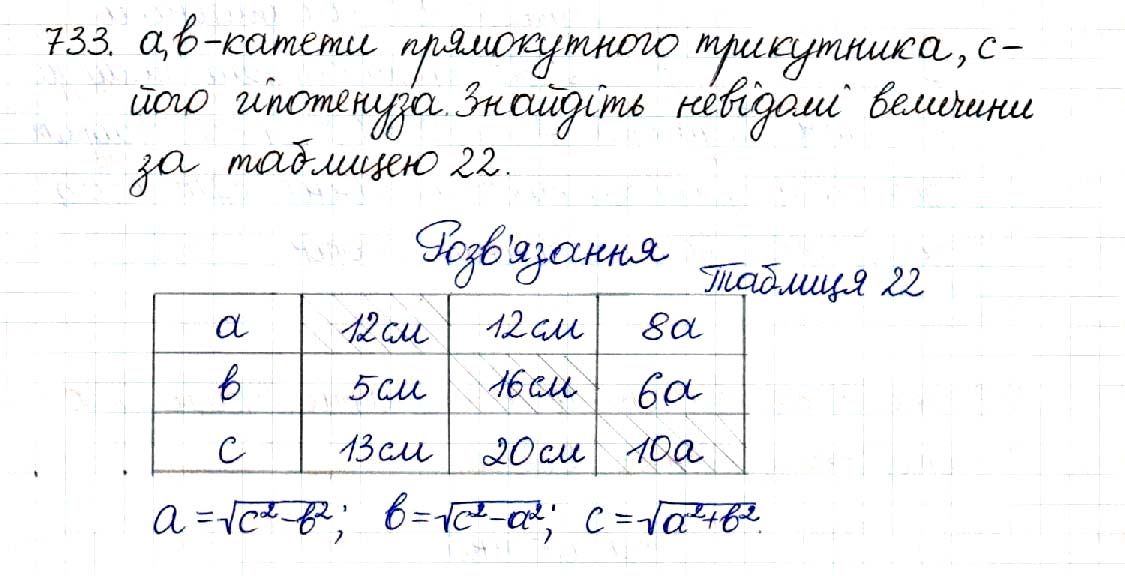 733. а,в-катети прямокутного трикутника, с-
його гіпотенуза. Знайдіть невідомі величини
за таблицею 22.
Розв'язання
Таблиця 22
а 12см 12см 8а
в 5см 16см 6а
с 13см 20см 10а
а = √с²-в²; в = √с²-а²; с = √а²+в².